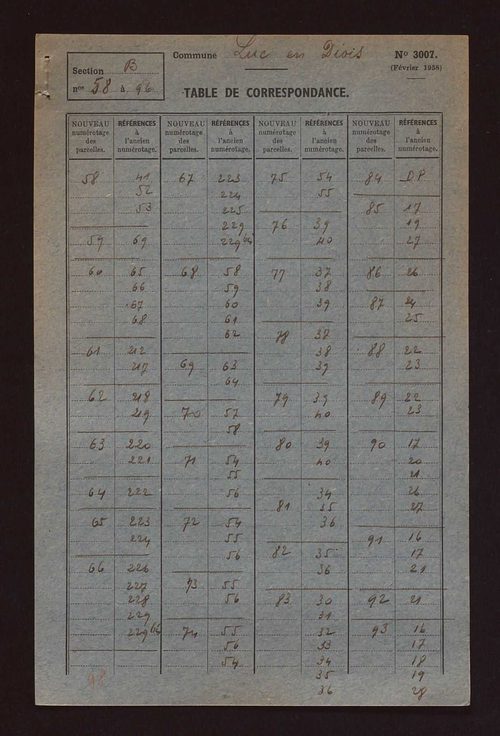 Section B
nos 58 à 96
Commune Luc en Diois
No 3007.
(Février 1938)
TABLE DE CORRESPONDANCE.
NOUVEAU numérotage des parcelles.
RÉFÉRENCES à l'ancien numérotage.
NOUVEAU numérotage des parcelles.
RÉFÉRENCES à l'ancien numérotage.
NOUVEAU numérotage des parcelles.
RÉFÉRENCES à l'ancien numérotage.
NOUVEAU numérotage des parcelles.
RÉFÉRENCES à l'ancien numérotage.
58 41
52
53
59 69
60 65
66
67
68
61 212
217
62 218
219
63 220
221
64 222
65 223
224
66 226
227
228
229
229 bis
67 223
224
225
229
229 bis
68 58
59
60
61
62
69 63
64
70 57
58
71 54
55
56
72 54
55
56
73 55
56
74 55
56
54
75 54
55
76 39
40
77 37
38
39
78 38
38
39
79 39
40
80 39
40
34
81 35
36
82 35
36
83 30
31
32
33
34
35
36
84 D.P.
85 17
19
27
86 26
87 24
25
88 22
23
89 22
23
90 17
20
21
26
27
91 16
17
21
92 21
93 16
17
18
19
28
98